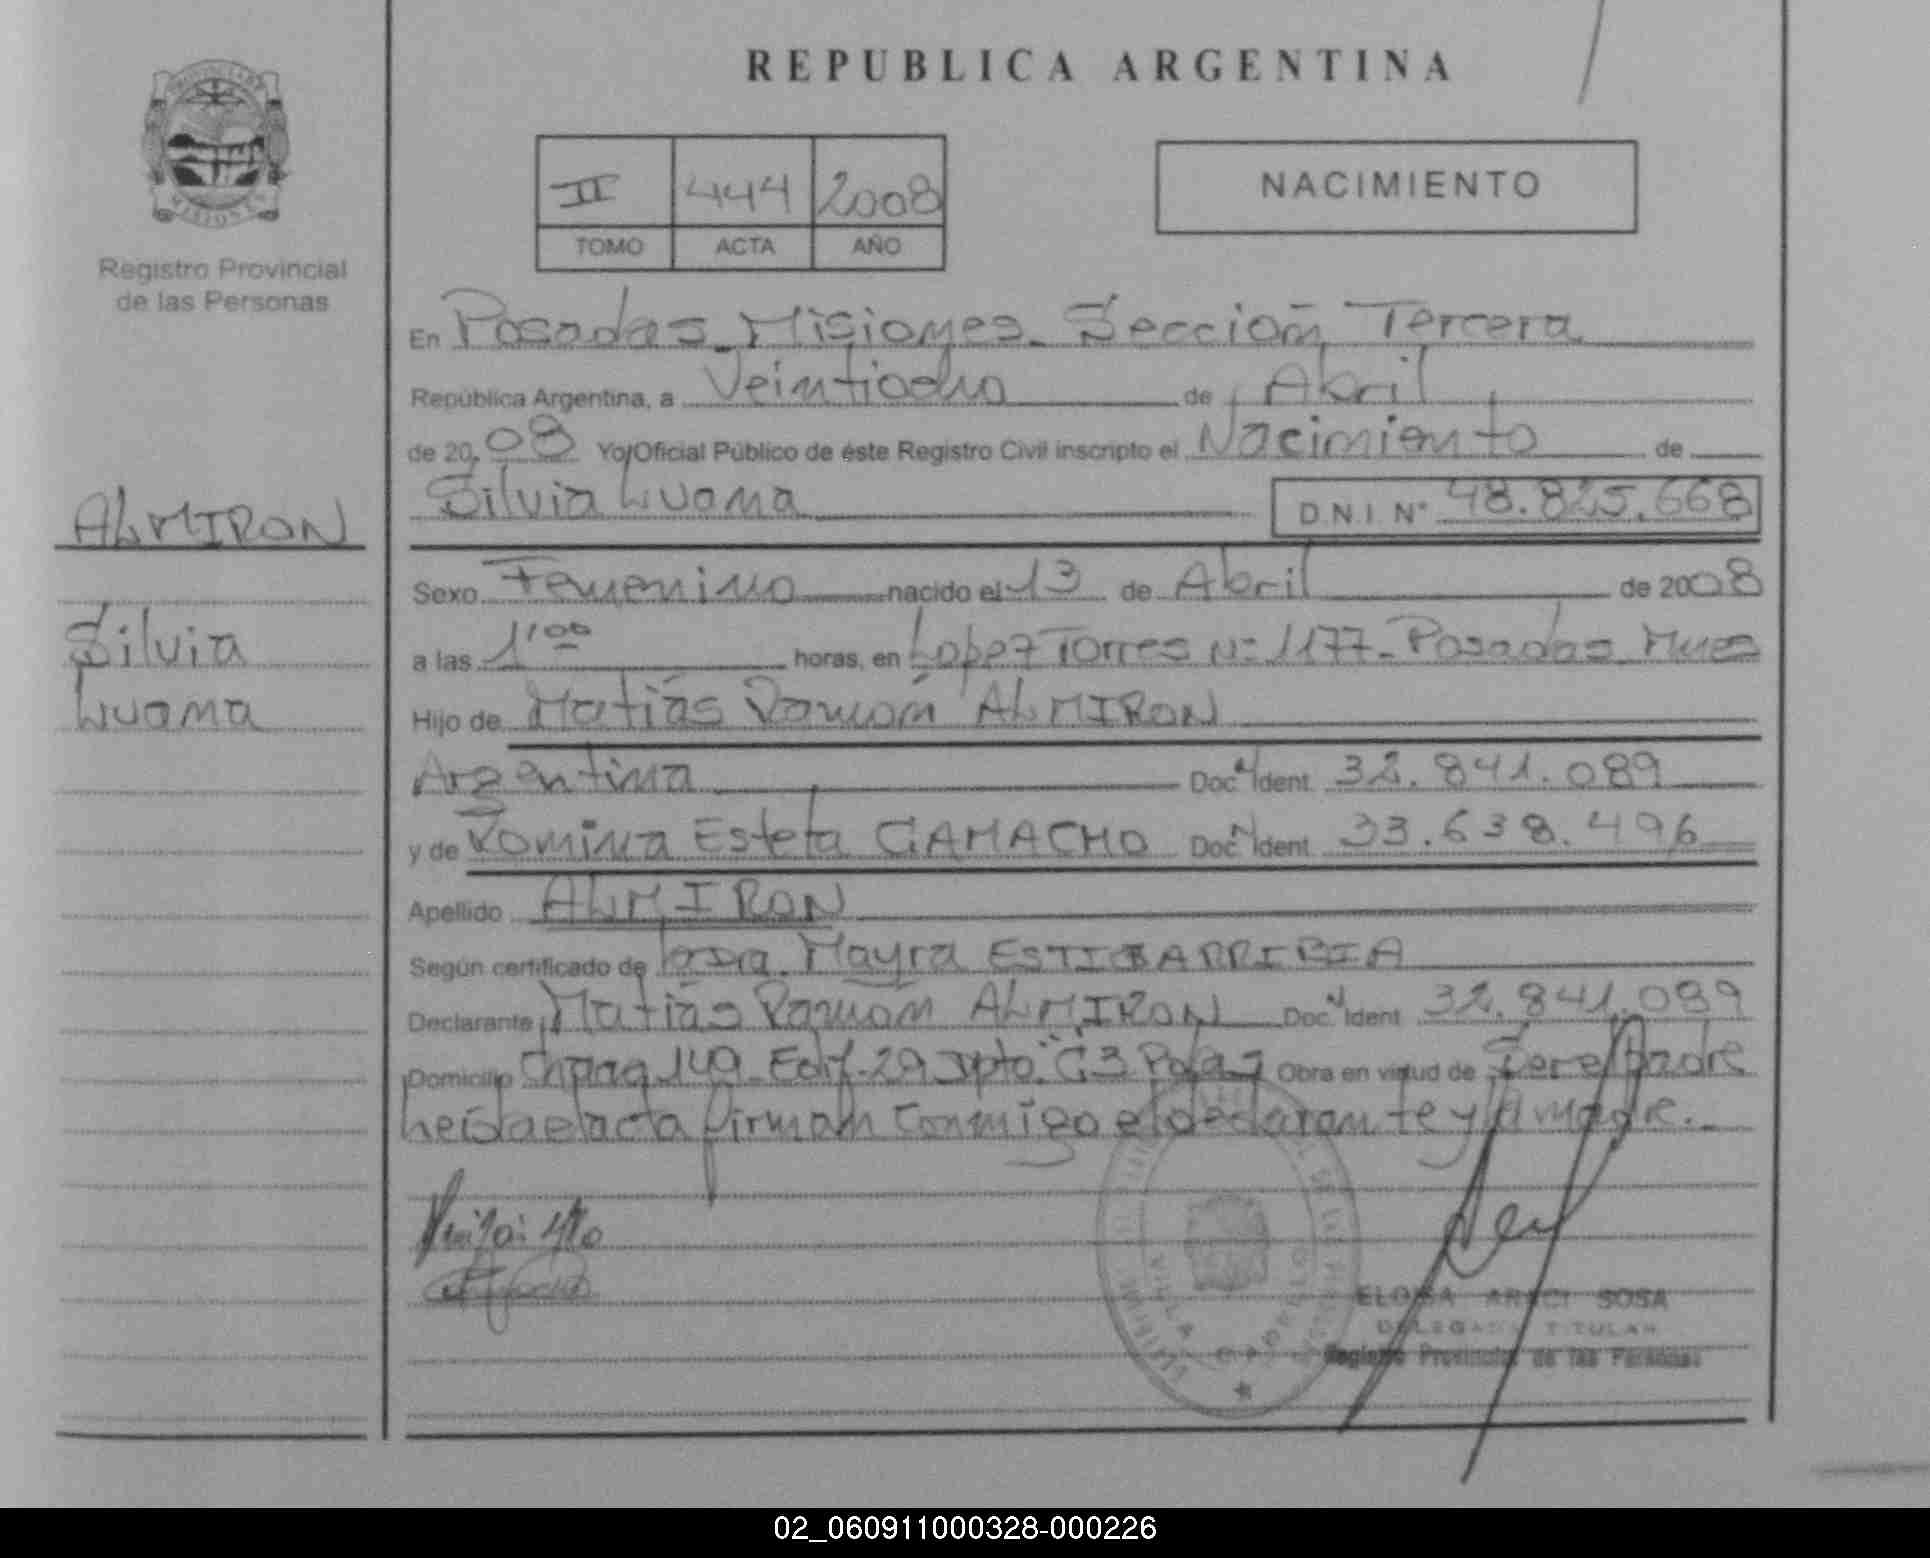 REPUBLICA ARGENTINA
II 444 2008
TOMO ACTA AÑO
NACIMIENTO
Registro Provincial
de las Personas
ALMIRON
Silvia
Luana
En Posadas Misiones. Sección Tercera
República Argentina, a Veintiocho de Abril
de 2008 Yo Oficial Público de éste Registro Civil inscripto el Nacimiento de
Silvia Luana D.N.I. N° 48.825.668
Sexo Femenino nacido el 13 de Abril de 2008
a las 1'00 horas, en Lopez Torres N° 1177 - Posadas Mnes
Hijo de Matias Ramón ALMIRON
Argentina Doc. Ident. 32.841.089
y de Romina Estela CAMACHO Doc. Ident. 33.638.496
Apellido ALMIRON
Según certificado de Mayra ESTIGARRIBIA
Declarante Matias Ramón ALMIRON Doc. Ident. 32.841.089
Domicilio Chacra 149 Edif. 29 Dpto "C" 3 Pdas Obra en virtud de Ser el padre
Leída el acta firman conmigo el declarante y la madre.
VILLA CABELLO
ELOISA ARACI SOSA
DELEGADA TITULAR
Registro Provincial de las Personas
02_060911000328-000226